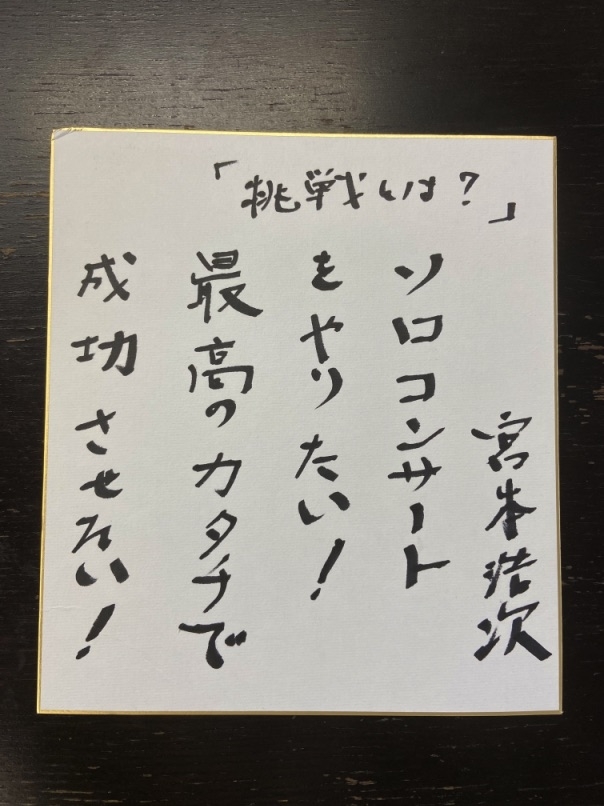 「挑戦とは？」
ソロコンサート
をやりたい！
最高のカタチで
成功させたい！
宮本浩次